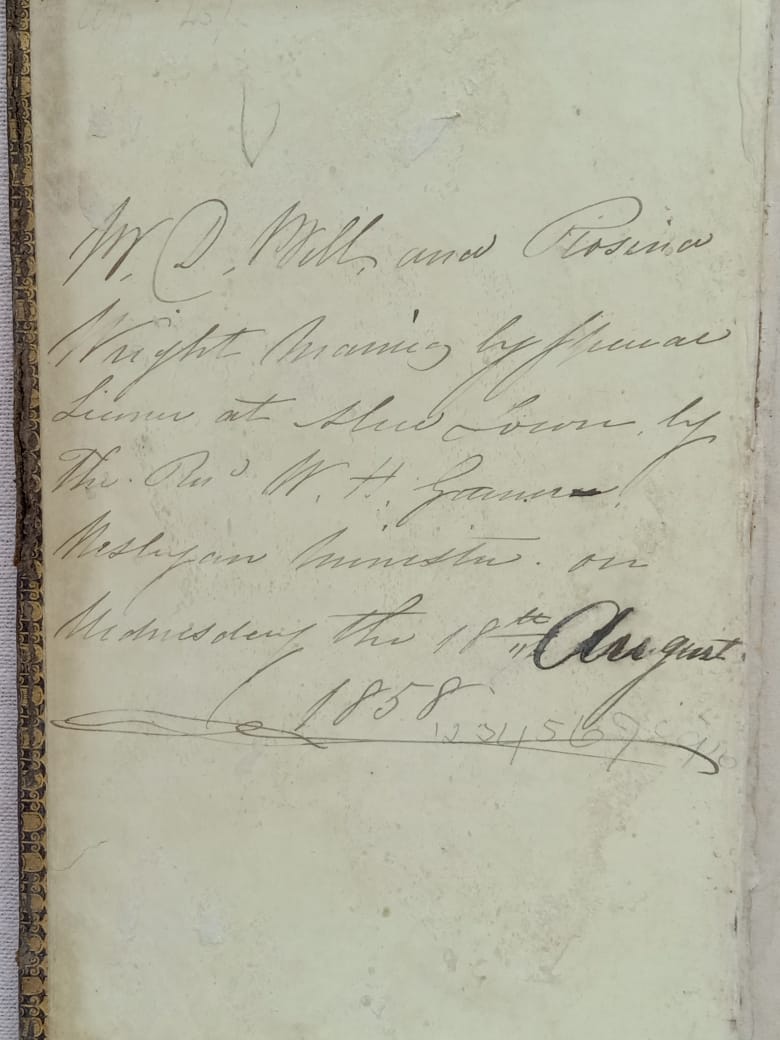 W. D. Will, and Rosina
Wright Married by Special
License at Town by
The Revd W. H.
Wesleyan Minister. on
Wednesday the 18th August
1858
1234567